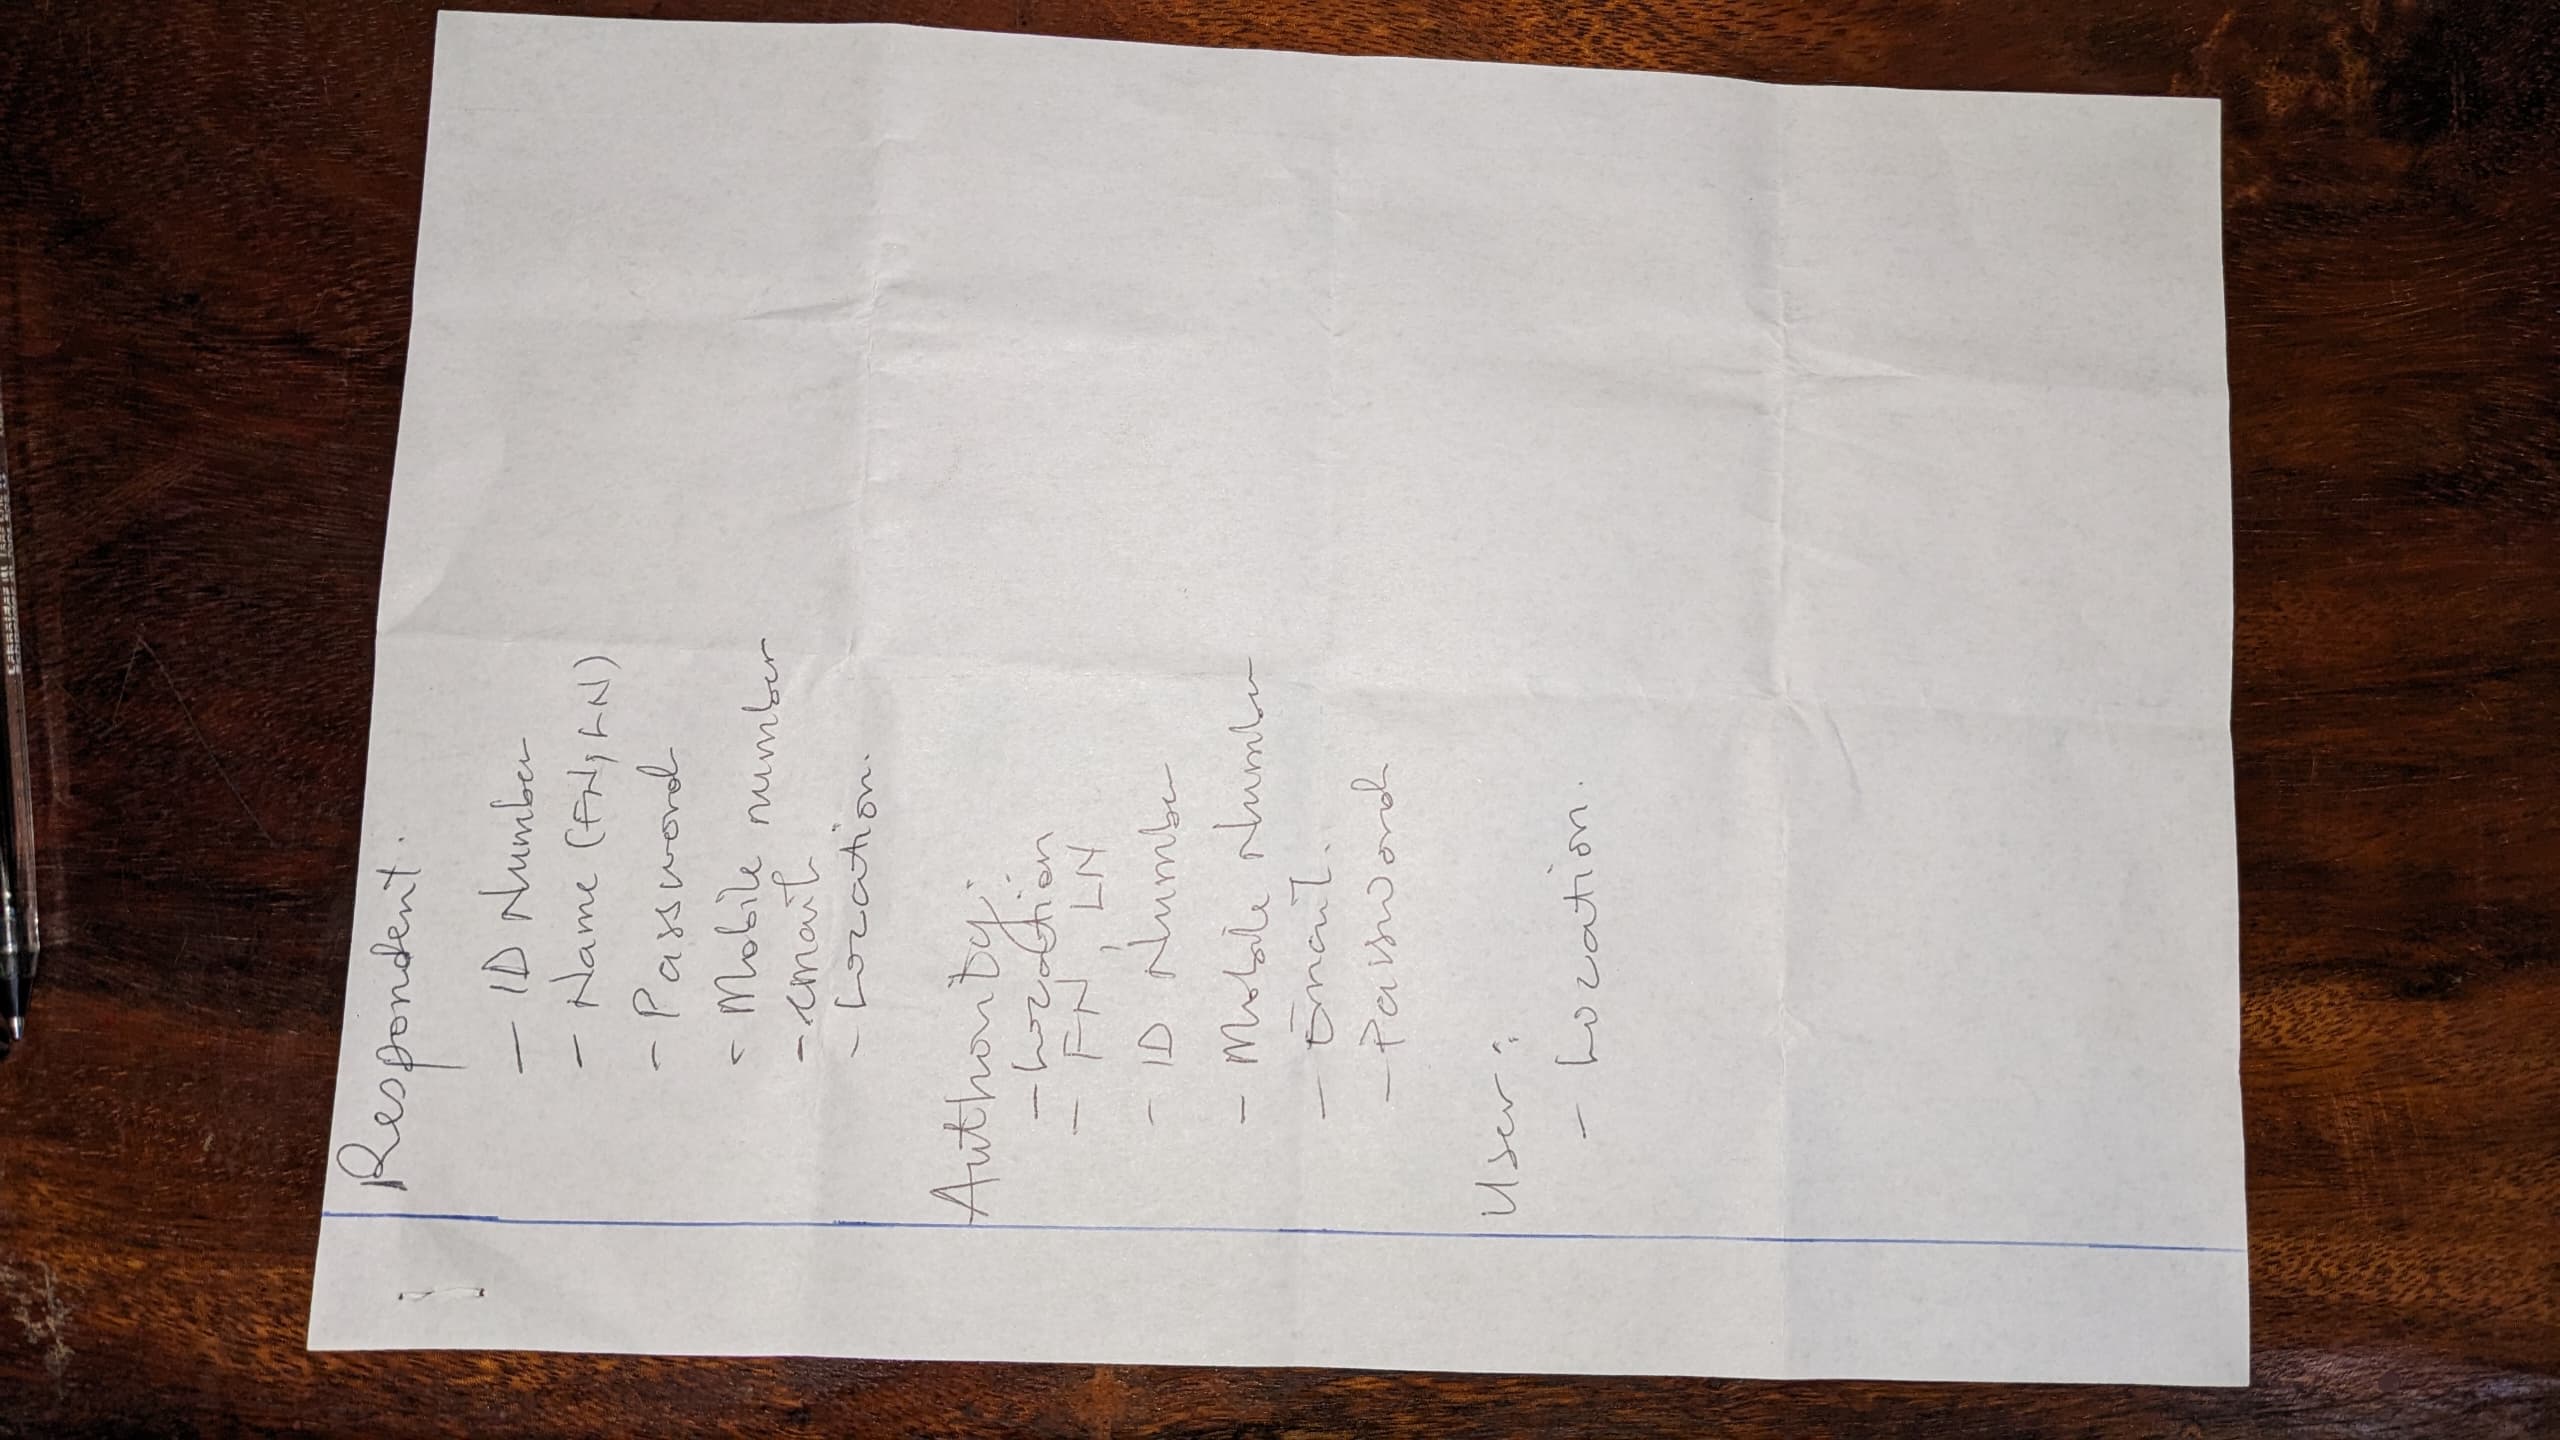 Respondent.
- ID Number
- Name (FN, LN)
- Password
- Mobile number
- email
- Location.
Authority:
- Location
- FN, LN
- ID Number
- Mobile Number
- Email.
- Password
User:
- Location.